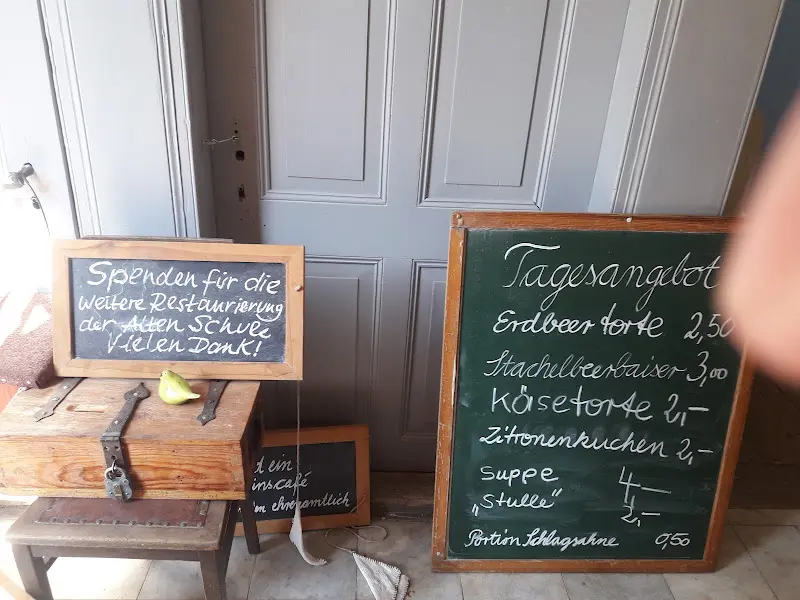 Spenden für die
weitere Restaurierung
der Alten Schule
Vielen Dank!
t ein
inscafé
en ehrenamtlich
Tagesangebot
Erdbeertorte 2,50
Stachelbeerbaiser 3,00
Käsetorte 2,-
Zitronenkuchen 2,-
Suppe 4,-
„Stulle" 2,-
Portion Schlagsahne 0,50